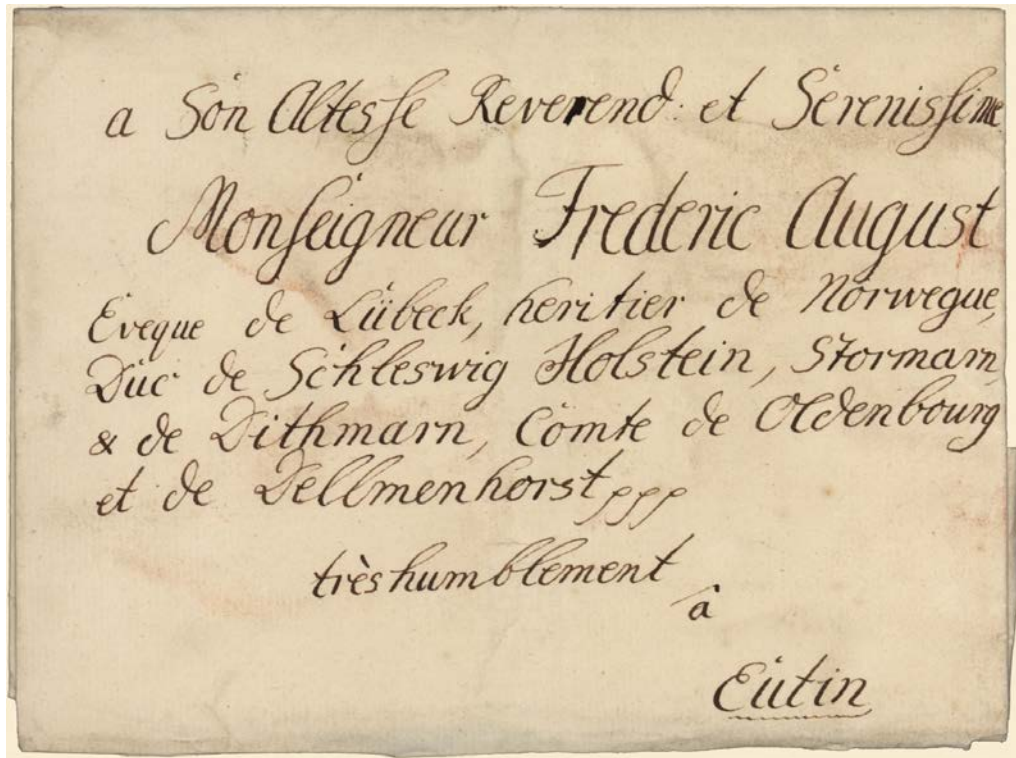 a Son Altesse Reverend: et Serenissime
Monseigneur Frederic August
Eveque de Lübeck, heritier de Norwegue,
Duc de Schleswig Holstein, Stormarn,
& de Dithmarn, Comte de Oldenbourg
et de Dellmenhorst ppp
très humblement
â
Eutin